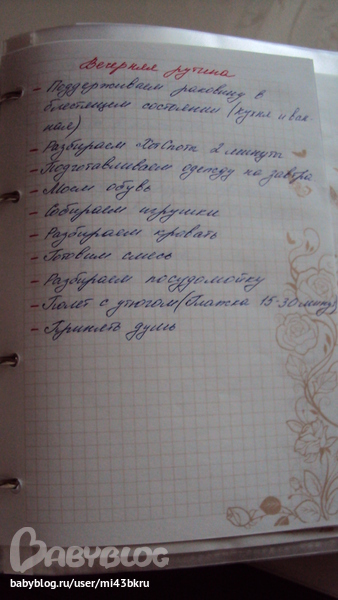 Вечерняя рутина
- Поддерживаем раковину в
блестящем состоянии (кухня и ван-
ная)
- Разбираем "Хот Споты" 2 минуты
- Подготавливаем одежду на завтра
- Моем обувь
- Собираем игрушки
- Разбираем кровать
- Готовим смесь
- Разбираем посудомойку
- Полет с утюгом (Глажка 15-30 минут)
- Принять душ
BABYBLOG
babyblog.ru/user/mi43bkru